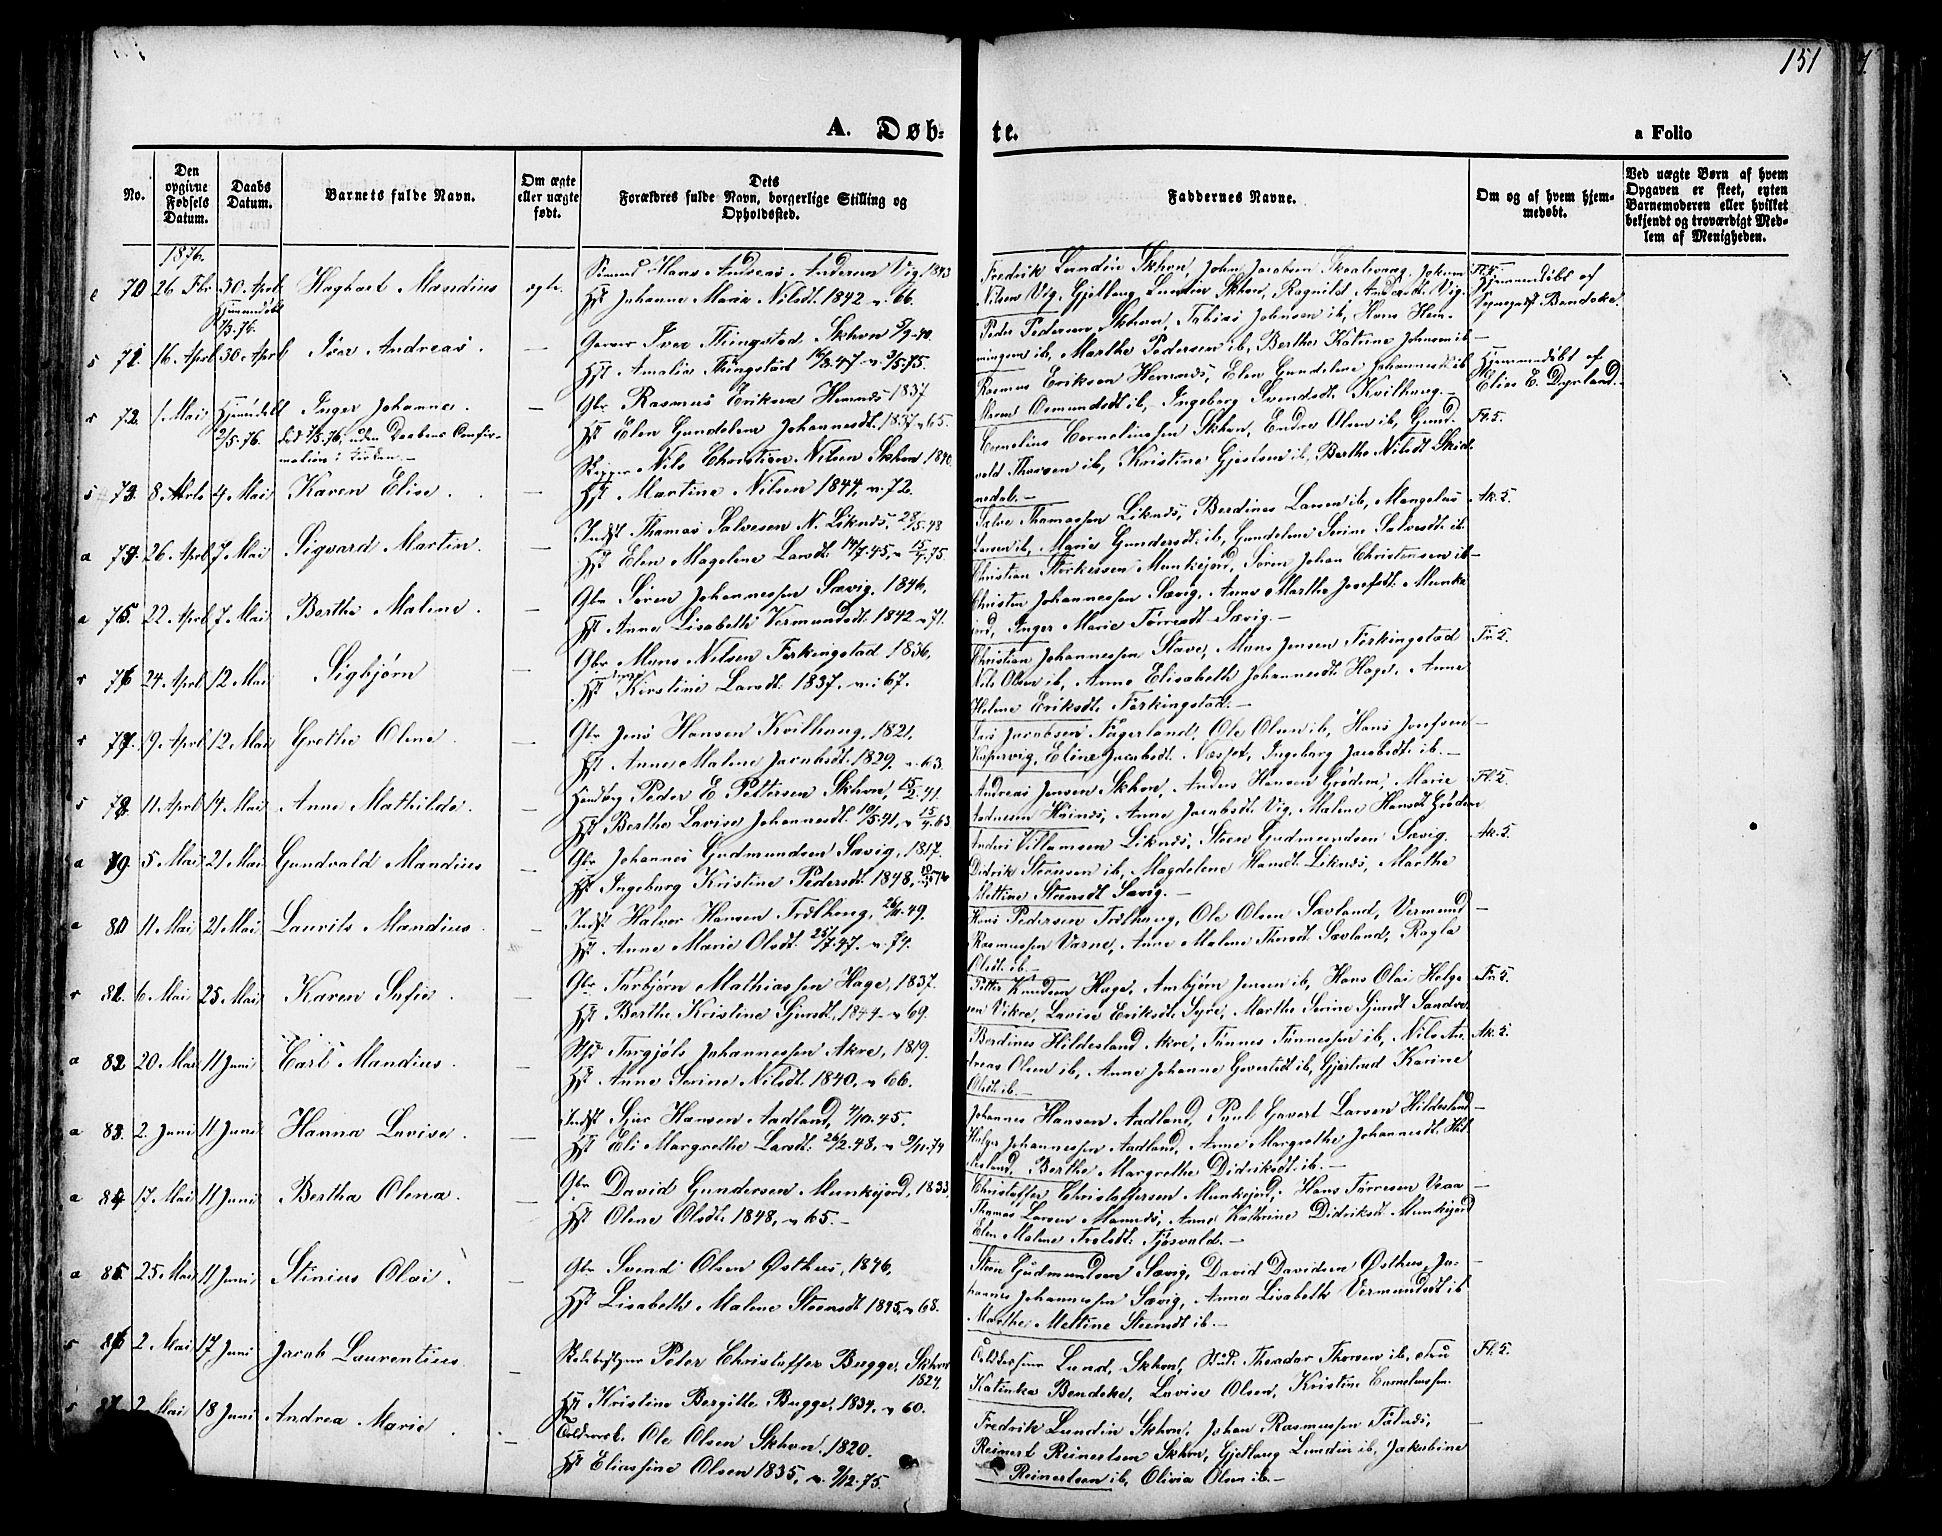 151
A. Døb-te.
a Folio
No.
Den opgivne Fødsels Datum.
Daabs Datum.
Barnets fulde Navn.
Om ægte eller uægte født.
Dets Forældres fulde Navn, borgerlige Stilling og Opholdssted.
Faddernes Navne.
Om og af hvem hjemmedøbt.
Ved uægte Børn af hvem Opgaven er skeet, enten Barnemoderen eller hvilket bekjendt og troværdigt Medlem af Menigheden.
1876.
70 26 Fbr 30 April Haghart Mandius ægte. Hans Andreas Andersen Vig, 1843
Hst Johanne Marie Nilsdt. 1842 v. 66.
Fredrik Lundin Skhvn, John Jacobsen
Nilsen Vig, Gjetlaug Lundin Skhvn, Ragnild Andersdt. Vig.
Hjemmedøbt af
71. 16 April 30 April Iver Andreas. — Iver Thingstad Skhvn 5/9.40.
Hst Amalia Thingstad 3.47 v. 75.
Peder Pedersen Skhvn, Tobias Johnsen ib, Hans Hem-
mingsen ib, Marthe Pedersen ib, Berthe Katrine Johnsen ib —
72. 1 Mai Inger Johanne. — Gbr Rasmus Eriksen Hemnes 1837
2/5.76. død 76, uden Daabens Confir-
mation i Kirken.—
Hst Elen Gundelene Johannesdt. 1837 v. 65.
Rasmus Eriksen Hemnes, Elen Gundelene Johannesdt. ib
Osmundsdt ib, Ingeborg Svendsdt. Kvilhaug. —
Hjemmedøbt af
Elias E. Dyrland.
73. 8 4 Mai Karen Elise. — Nils Christian Nilsen Skhvn 1840
Hst Martine Nilsen 1844, v. 72.
Cornelius Corneliussen Skhvn, Endre Olsen ib, Gund-
vald Thorsen ib, Kristine Gjertsen ib, Berthe Nilsdt Skud-
nedal. —
Fl. 5.
74. 26 April 7 Mai Sigvard Martin. — Indst Thomas Salvesen N. Liknes, 28/5.48
Hst Elen Magelene Larsdt 45, v. 75.
Salve Thomassen Liknes, Berdines Larsen ib, Mangelus
Larsen ib, Marie Gundersdt. ib, Gundelene Serine Salvesdt. ib.
Ak. 5.
75. 22 April 7 Mai Berthe Malene. — Gbr Søren Johannessen Sævig, 1846,
Hst Anne Lisabeth Vermundsdt. 1842 v. 71.
Christian Størkersen Munkejord, Søren Johan Christensen ib —
Christen Johannessen Sævig, Anne Marthe Josefsdt. Munke-
jord, Inger Marie Tørresdt Sævig. —
76 24 April 12 Mai Sigbjørn — Gbr Mons Nilsen Ferkingstad 1836,
Hst Kirstine Larsdt. 1837. v. 67.
Christian Johannessen Stave, Mons Jensen Ferkingstad
Nils Olsen ib, Anne Elisabeth Johannesdt. Hage, Anne
Helene Eriksdt. Ferkingstad. —
77. 9 April 12 Mai Grethe Olene. — Gbr Jens Hansen Kvilhaug, 1821,
Hst Anne Malene Jacobsdt. 1829, v. 63.
Lars Jacobsen Fagerland, Ole Olsen ib, Hans Josefsen —
Kopervig, Eline Jacobsdt. Næsset, Ingeborg Jacobsdt. ib. —
78. 11 April 14 Mai Anne Mathilde. — Peder E Pettersen Skhvn, 15/2.41.
Hst Berthe Lavise Johannesdt. 41, v. 63
Andreas Jensen Skhvn, Anders Hansen Grødem, Marie
Andersen Høines, Anne Jacobsdt. Vig, Malene Hansdt Grødem
Fl. 5.
79 5 Mai 21 Mai Gundvald Mandius — Gbr Johannes Gudmundsen Sævig, 1817.
Hst Ingeborg Kristine Pedersdt. 1848,
Anders Villamsen Liknes, Steen Gudmundsen Sævig,
Didrik Steensen ib, Magdelene Hansdt. Liknes, Marthe
Mettine Steensdt Sævig. —
Ak. 5.
80 11 Mai 21 Mai Laurits Mandius. — Indst Halvor Hansen Trælhaug, 49.
Hst Anne Marie Olsdt. 47. v. 74.
Hans Pedersen Trælhaug, Ole Olsen Sævland, Vermund —
Rasmussen Varne, Anne Malene Thorsdt. Sævland, Ragla
Olsdt. ib. —
81. 6 Mai 25 Mai Karen Sofie. — Gbr Torbjørn Mathiassen Hage, 1837.
Hst Berthe Kristine 1844 v. 69.
Petter Knudsen Hage, Arnbjørn Jensen ib, Hans Olai Helge-
sen Vikre, Lavise Eriksdt. Syre, Marthe Serine Sandve.
82 20 Mai 11 Juni Carl Mandius. — Torgjøls Johannessen Akre, 1819.
Hst Anne Serine Nilsdt. 1840, v. 66.
Berdines Hildesland Akre, Tønnes Tønnessen ib, Nils An-
dreas Olsen ib, Anne Johanne Govertsdt ib, Gjertrud Karine
Olsdt. ib. —
Ak. 5.
83. 2. Juni 11 Juni Hanna Lovise. — Indst Sjur Hansen Aadland, 10.45.
Hst Eli Margrethe Larsdt. 26/2.48, v. 74
Johannes Hansen Aadland, Paul Govert Larsen Hildesland —
Helge Johannessen Aadland, Anne Margrethe Johannesdt. Hil-
desland, Berthe Margrethe Didriksdt. ib. —
84 17. Mai 11 Juni Bertha Olena. — Gbr David Gundersen Munkejord, 1833,
Hst Olene Olsdt. 1848, v. 65. —
Christoffer Christoffersen Munkejord, Hans Tørresen Vaa —
Thomas Larsen Mannes, Anne Kathrine Didriksdt Munkejord
Elen Malene Tjøsvold. —
85 25 Mai 11 Juni Stinius Olai. — Gbr Svend Olsen Østhus, 1846,
Hst Lisabeth Malene Steensdt 1845, v. 68.
Steen Gudmundsen Sævig, David Davidsen Østhus, Jo- —
hannes Johannessen Sævig, Anne Lisabeth Vermundsdt ib
Marthe Mettine Steensdt ib. —
86 2 Mai 17 Juni Jacob Laurentius — Skolebestyrer Peter Christoffer Bugge, Skhvn
1824,
Hst Kristine Bergitte Bugge, 1834, v. 60.
Lund, Skhvn, Theodor Thorsen ib, Fru
Katinka Bendeke, Lovise Olsen, Kristine Corneliussen.
Fl. 5.
87 2 Mai 18 Juni Andrea Marie. — Ole Olsen Skhvn. 1820.
Hst Eliassine Olsen 1835, v. 9/12.75.
Fredrik Lundin Skhvn, Johan Rasmussen Falnes, —
Reinert Reinertsen Skhvn, Gjetlaug Lundin ib, Jakobine
Reinertsen ib, Olivia Olsen ib. —